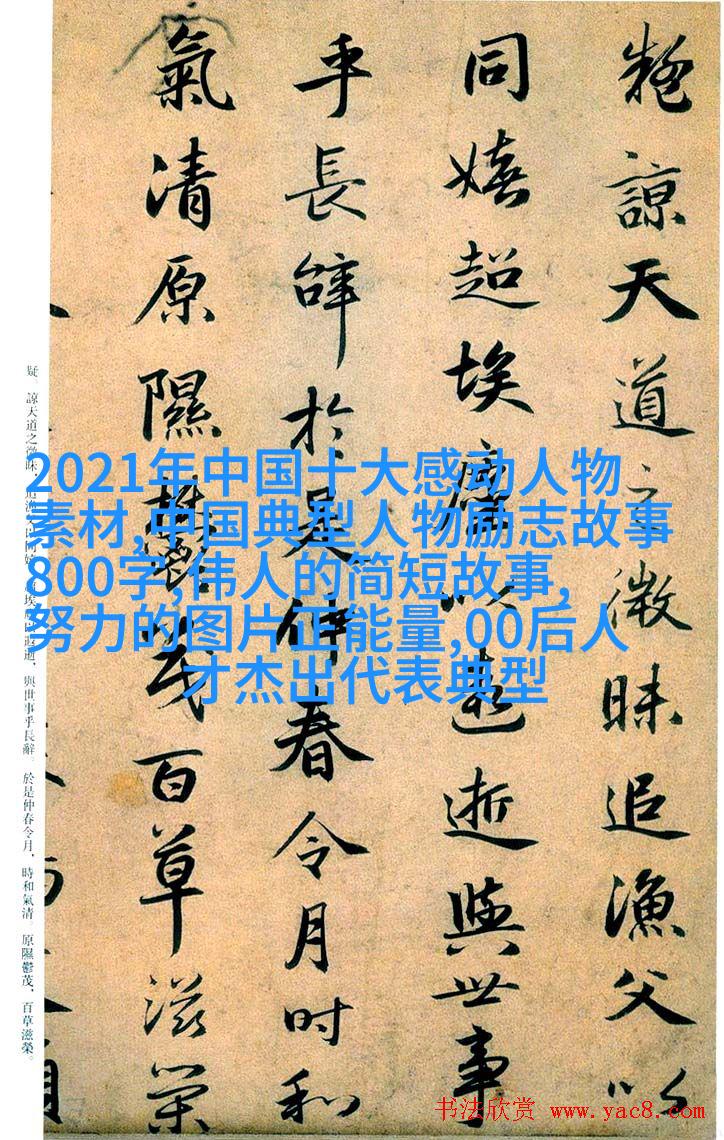 疑諒天道之微昧追漁父以
同嬉超埃塵以遐逝與世事
乎長辭於是仲春令月時和
氣清原隰鬱茂百草滋榮
疑。諒天道之微昧，追漁父以同嬉。超埃塵以遐逝，與世事乎長辭。於是仲春令月，時和氣清。原隰鬱茂，百草滋榮。
2021年中国十大感动人物
素材,中国典型人物励志故事
800字,伟人的简短故事,
努力的图片正能量,00后人
才杰出代表典型
书法欣赏 www.yac8.com